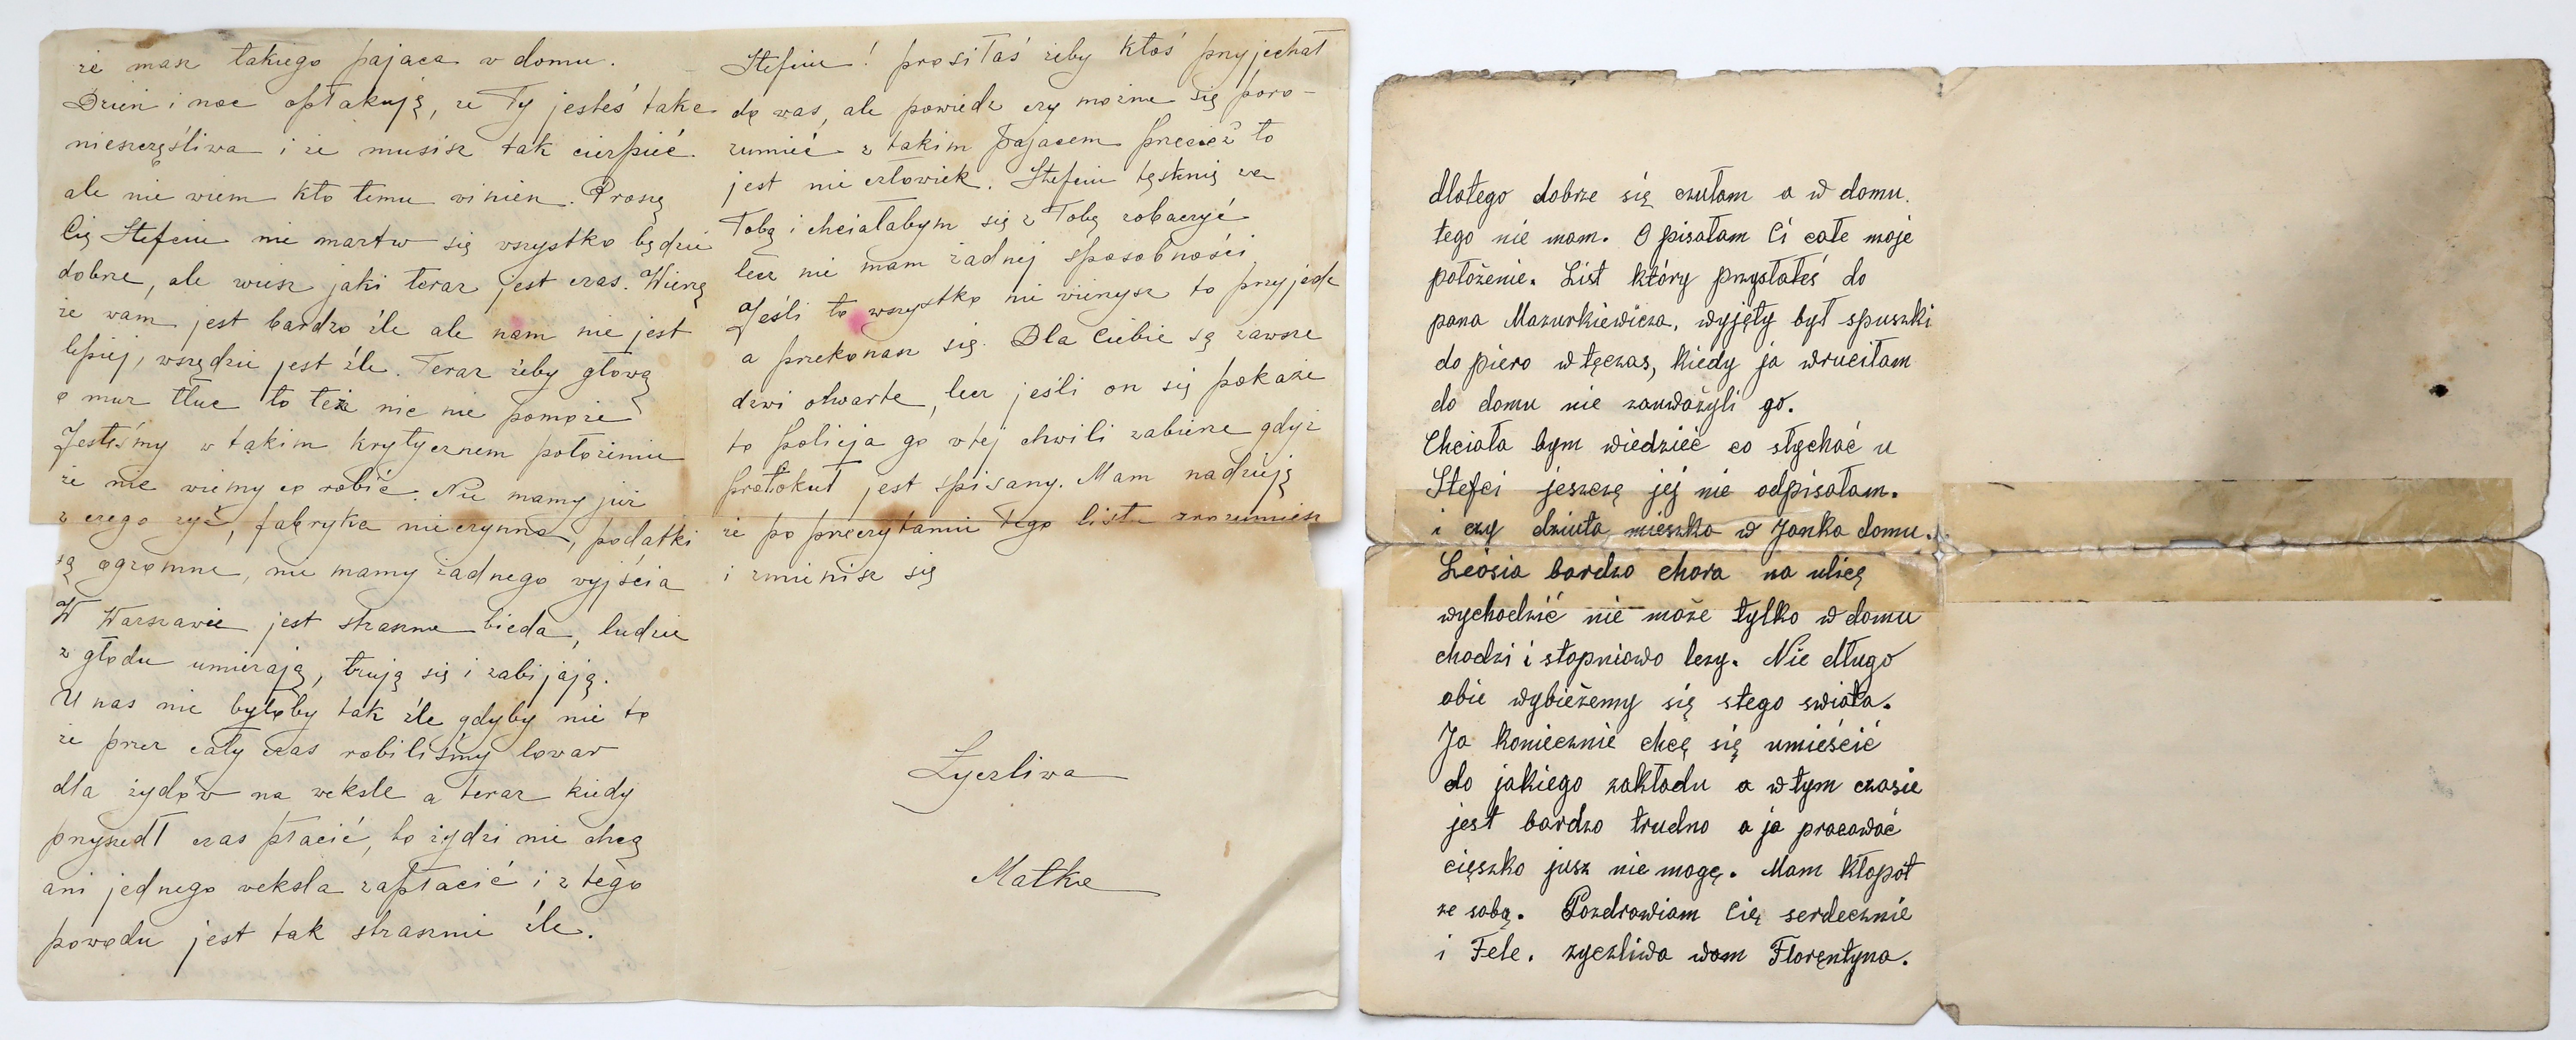 że masz takiego pajaca w domu.
Dzień i noc opłakuję, że Ty jesteś taka
nieszczęśliwa i że musisz tak cierpieć
ale nie wiem kto temu winien. Proszę
Cię Stefciu nie martw się wszystko będzie
dobrze, ale wiesz jaki teraz jest czas. Wierzę
że wam jest bardzo źle ale nam nie jest
lepiej, wszędzie jest źle. Teraz żeby głową
o mur tłuc to też nic nie pomoże
Jesteśmy w takim krytycznem położeniu
że nie wiemy co robić. Nie mamy już
z czego żyć, fabryka nieczynna, podatki
są ogromne, nie mamy żadnego wyjścia
W Warszawie jest straszna bieda, ludzie
z głodu umierają, trują się i zabijają.
U nas nie byłoby tak źle gdyby nie to
że przez cały czas robiliśmy towar
dla żydów na weksle a teraz kiedy
przyszedł czas płacić, to żydzi nie chcą
ani jednego weksla zapłacić i z tego
powodu jest tak strasznie źle.
Stefciu! prosiłaś żeby ktoś przyjechał
do was, ale powiedz czy można się poro-
zumieć z takim pajacem przecież to
jest nie człowiek. Stefciu tęsknię za
Tobą i chciałabym się z Tobą zobaczyć
lecz nie mam żadnej sposobności
Jeśli to wszystko nie wierzysz to przyjedź
a przekonasz się. Dla Ciebie są zawsze
drzwi otwarte, lecz jeśli on się pokaże
to policja go w tej chwili zabierze gdyż
protokuł jest spisany. Mam nadzieję
że po przeczytaniu tego listu zrozumiesz
i zmienisz się
Życzliwa
Matka
dlatego dobrze się czułam a w domu.
tego nie mam. O pisałam Ci całe moje
położenie. List który przysłałeś do
pana Mazurkiewicza, wyjęty był spuszki
do piero w tęczas, kiedy ja wruciłam
do domu nie zauważyli go.
Chciała bym wiedzieć co słychać u
Stefci jeszczę jej nie odpisałam.
i czy dziuta mieszka w Janka domu.
Leosia bardzo chora na ulicę
wychodzić nie może tylko w domu
chodzi i stopniowo leży. Nie długo
obie wybieżemy się stego swiata.
Ja koniecznie chcę się umieścić
do jakiego zakładu a w tym czasie
jest bardzo trudno a ja pracować
cięszko jusz nie mogę. Mam kłopot
ze sobą. Pozdrawiam Cię serdecznie
i Fele. zyczliwa wam Floręntyna.